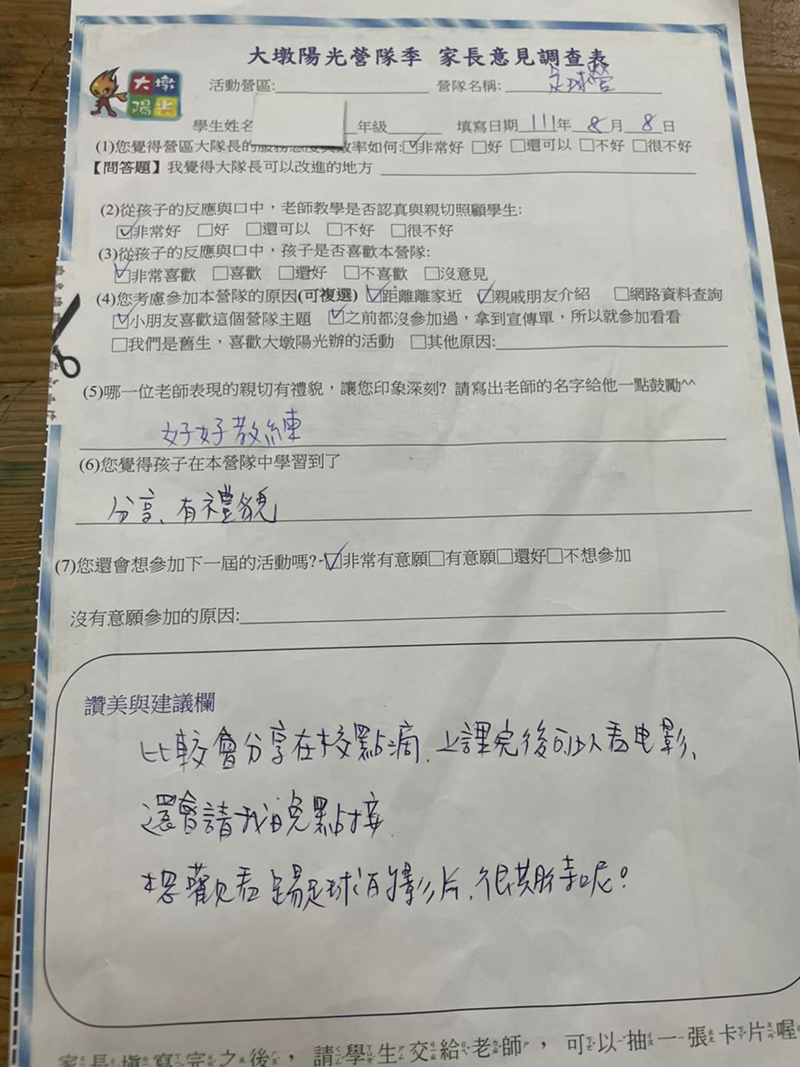 大墩陽光營隊季 家長意見調查表
大墩
陽光
活動營區: 營隊名稱: 足球營
學生姓名 年級 填寫日期 111年 8月 8日
(1)您覺得營區大隊長的服務態度與效率如何:☑非常好 □好 □還可以 □不好 □很不好
【問答題】我覺得大隊長可以改進的地方
(2)從孩子的反應與口中，老師教學是否認真與親切照顧學生:
☑非常好 □好 □還可以 □不好 □很不好
(3)從孩子的反應與口中，孩子是否喜歡本營隊:
☑非常喜歡 □喜歡 □還好 □不喜歡 □沒意見
(4)您考慮參加本營隊的原因(可複選) ☑距離離家近 ☑親戚朋友介紹 □網路資料查詢
☑小朋友喜歡這個營隊主題 ☑之前都沒參加過，拿到宣傳單，所以就參加看看
□我們是舊生，喜歡大墩陽光辦的活動 □其他原因:
(5)哪一位老師表現的親切有禮貌，讓您印象深刻? 請寫出老師的名字給他一點鼓勵^^
好好教練
(6)您覺得孩子在本營隊中學習到了
分享、有禮貌
(7)您還會想參加下一屆的活動嗎?☑非常有意願□有意願□還好□不想參加
沒有意願參加的原因:
讚美與建議欄
比較會分享在校點滴、上課完後可以看电影、
還會請我晚點接、
想觀看踢足球的影片、很期待呢！
家長填寫完之後，請學生交給老師，可以抽一張卡片喔